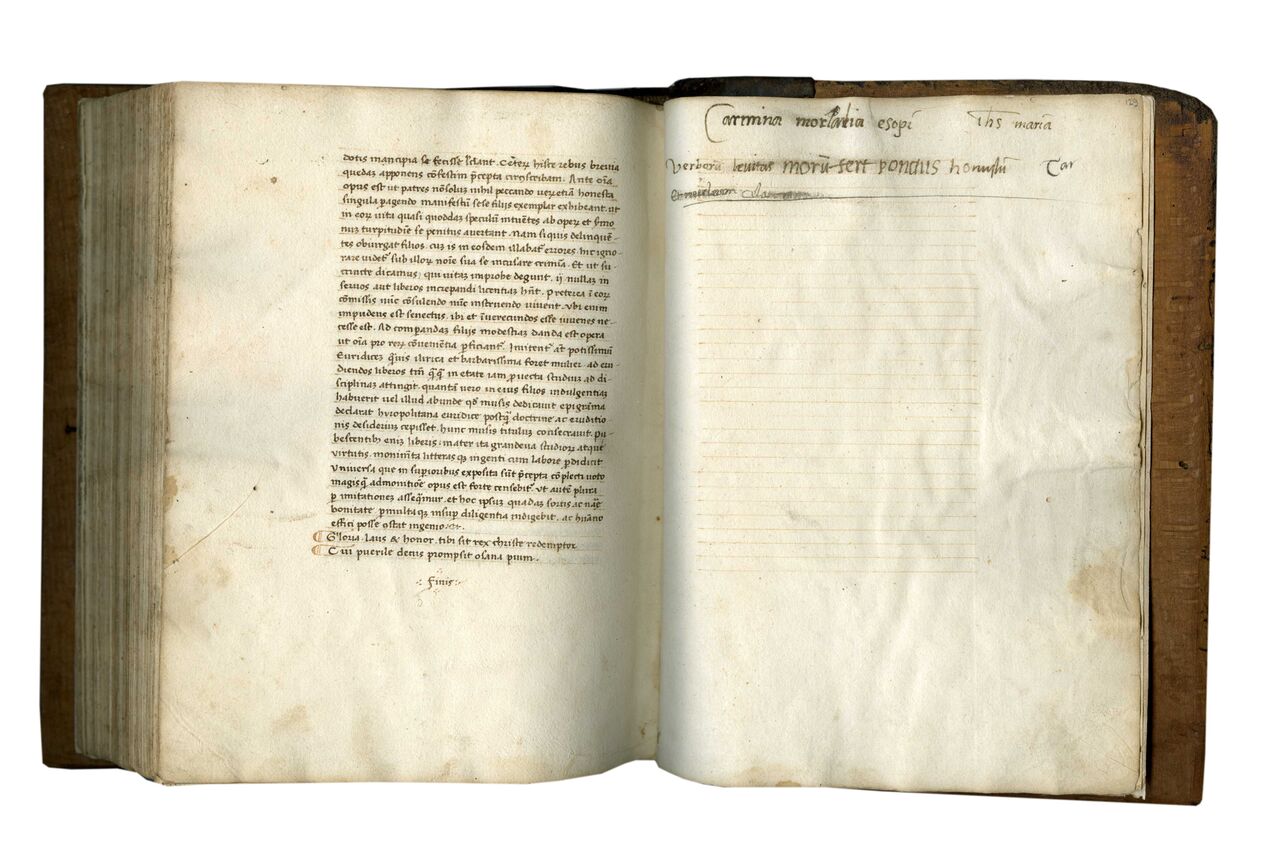 dotis mancipia se fecisse sciant. Ceterꝝ hisce rebus brevia
quedaʒ apponens cōfestim p̄cepta circūscribam. Ante oīa
opus est ut patres nōsoluʒ nihil peccando veretiam honesta
singula pagendo manifestū sese filijs exemplar exhibeant. ut
in eoꝝ vita quasi quoddaʒ speculū intuētes ab opeꝝ et s̄mo
nuʒ turpitudīe se penitus avertant. Nam siquis delinquē-
tes obiurgat filios. cuʒ is in eosdem illabat̄ errores. hic igno-
rare videt̄ sub illoꝝ noīe sua se incusare crimīa. Et ut su-
cincte dicamus; qui vitaʒ improbe degunt. ij nullaʒ in
servos aut liberos increpandi licentiaʒ hn̄t. Preterea ī eoꝝ
cōmissis nūc cōsulendo nūc instruendo vivent. Vbi enim
impudens est senectus. ibi et īverecundos esse iuvenes ne-
cesse est. Ad comparandaʒ filijs modestiaʒ danda est opera
ut oīa pro reꝝ cōvenientia ꝑficiant. Imitent̄ aūt potissimū
Euridiceʒ q̄uis ilirica et barbarissima foret mulier. ad eru-
diendos liberos tm̄ q̄q̄ in etate iam ꝓvecta studiuʒ ad di-
sciplinaʒ attingit. quantā vero in eius filios indulgentiaʒ
habuerit vel illud abunde qd̄ musis dedicavit epigrāma
declarat hyropolitana euridice postq̄ doctrine ac eruditio-
nis desideriuʒ cepisset. hunc musis tituluʒ consecravit. Pu-
bescentibꝫ eniʒ liberis. mater ita grandeva studioꝝ atque
virtutis. monimēta litteras qʒ ingenti cum labore ꝑdidicit
Vniversa que in suꝑioribus exposita sūt p̄cepta cōplecti voto
magisqʒ admonitiōe opus est forte censebit̄. Vt autē plura
ꝑ imitationeʒ asseq̄mur. et hoc ipsuʒ quadaʒ sortis ac nāe
bonitate ꝑmultaqʒ insuꝑ diligentia indigebit. ac hūano
effici posse ostat ingenio.
Gloria. laus & honor. tibi sit rex christe redemptor
Cui puerile decus prompsit osana pium.
Finis
129
Carmina morlalia esopi ihs maria
Verborū brevitas morū fert pondus honustū Car